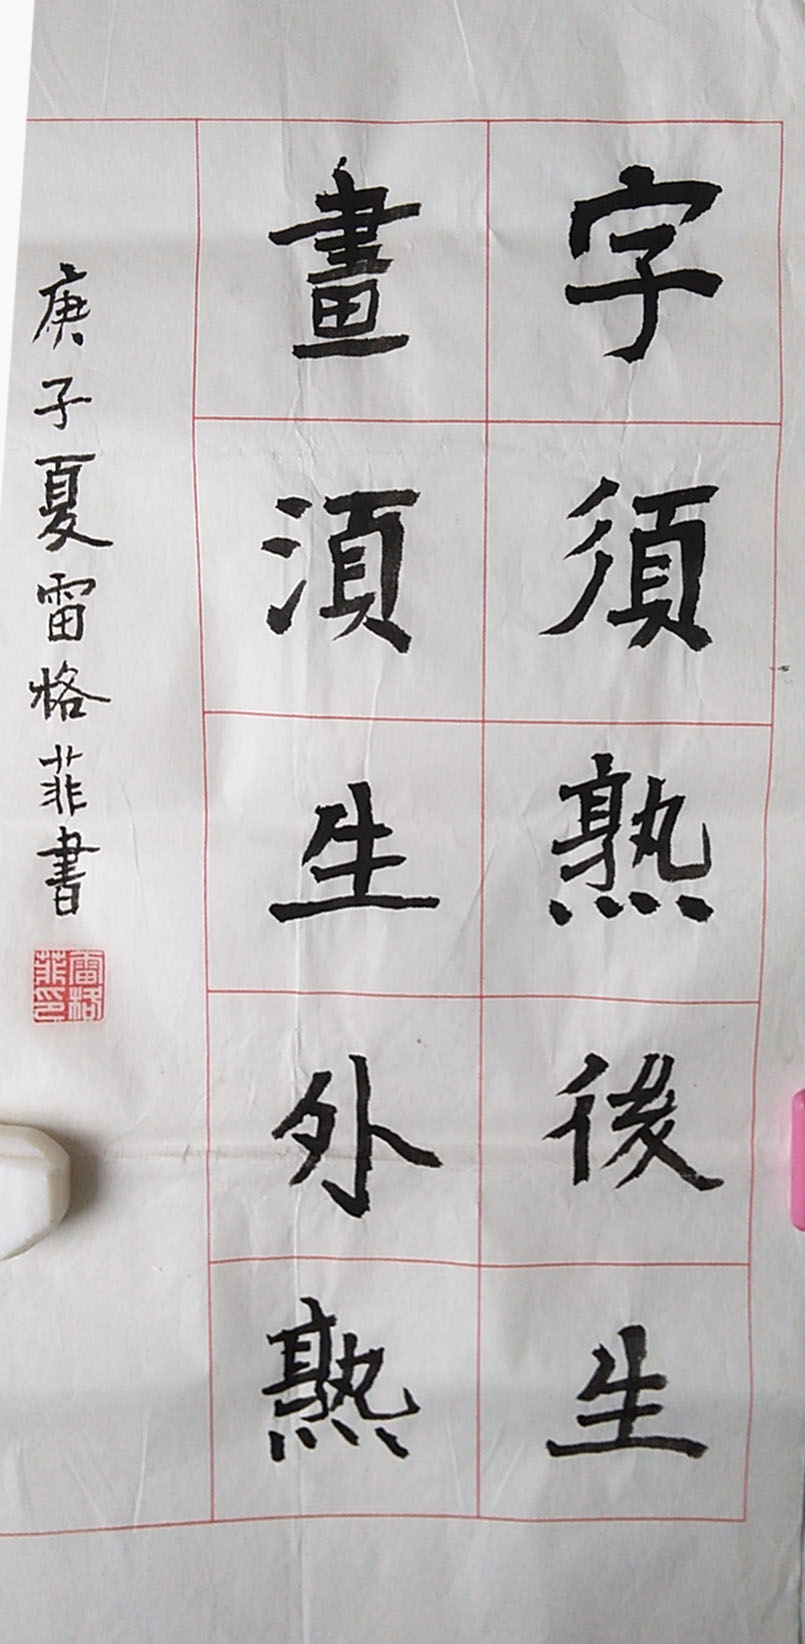 字須熟後生
畫湏生外熟
庚子夏雷格菲書
雷格菲印